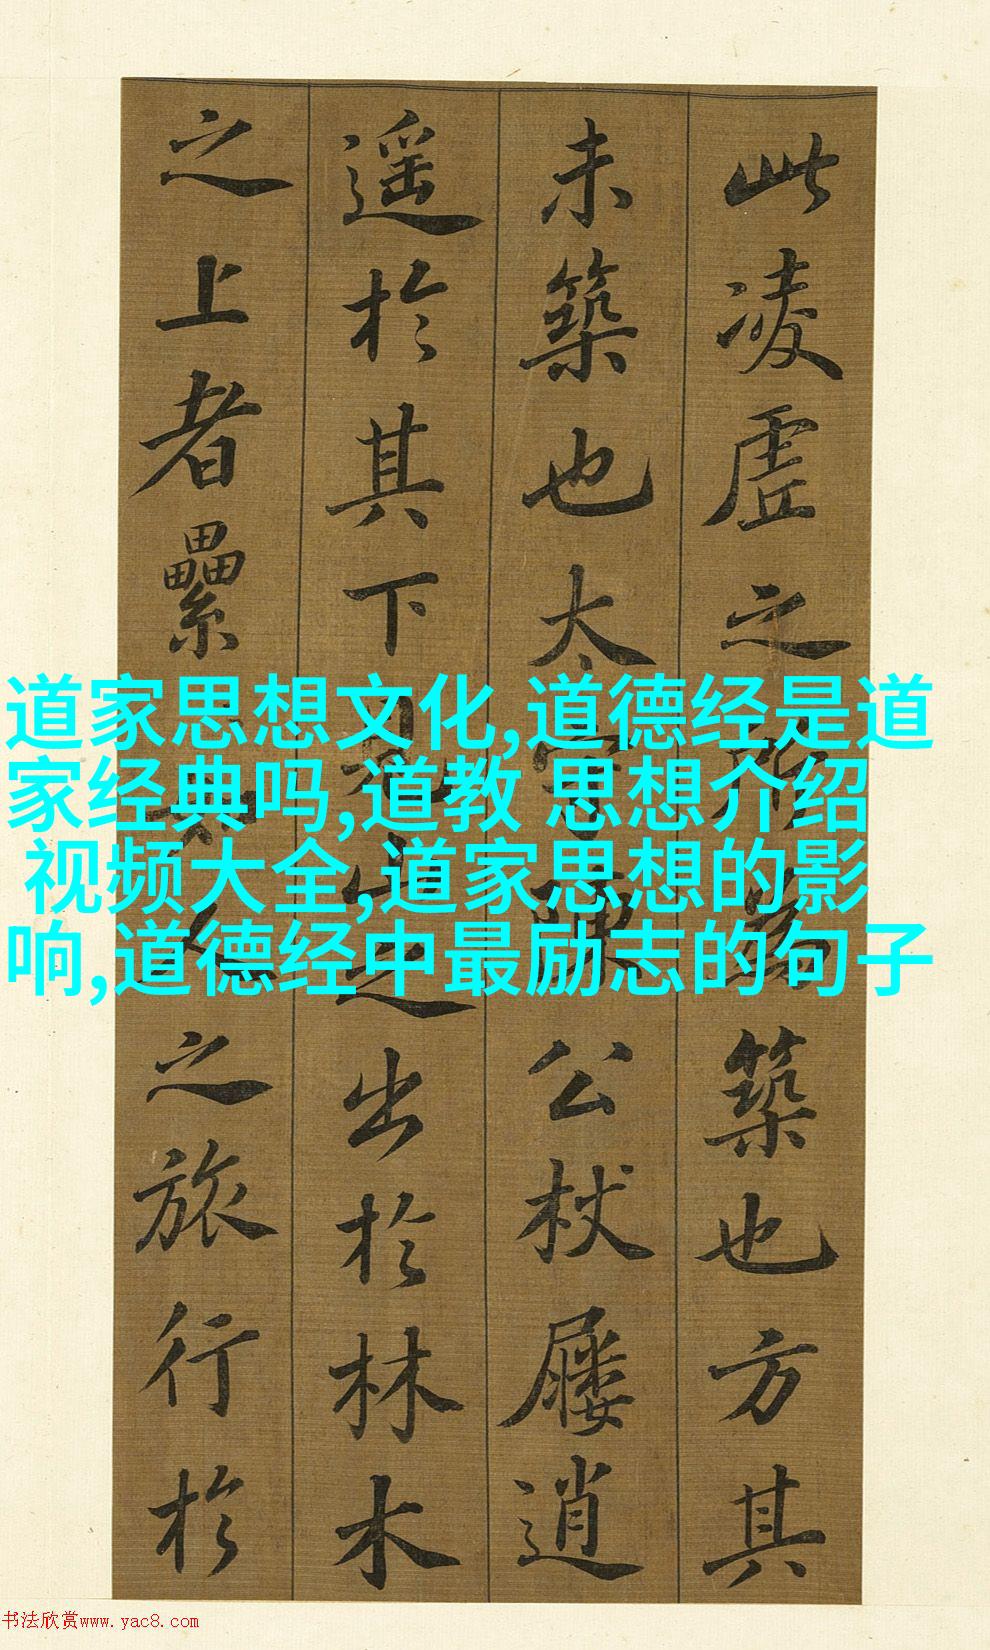 此凌虛之所為築也方其
未築也太守陳公杖屨逍
遥於其下見山之出於林木
之上者纍如人之旅行於
道家思想文化,道德经是道
家经典吗,道教 思想介绍
视频大全,道家思想的影
响,道德经中最励志的句子
书法欣赏www.yac8.com